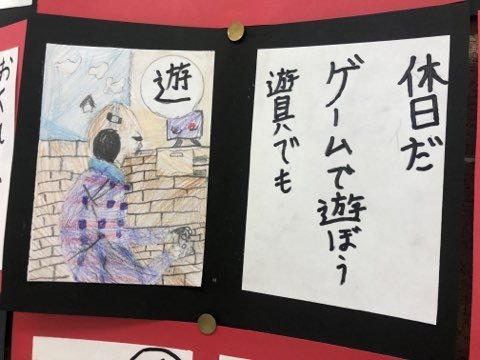 休日だ
ゲームで遊ぼう
遊具でも
遊